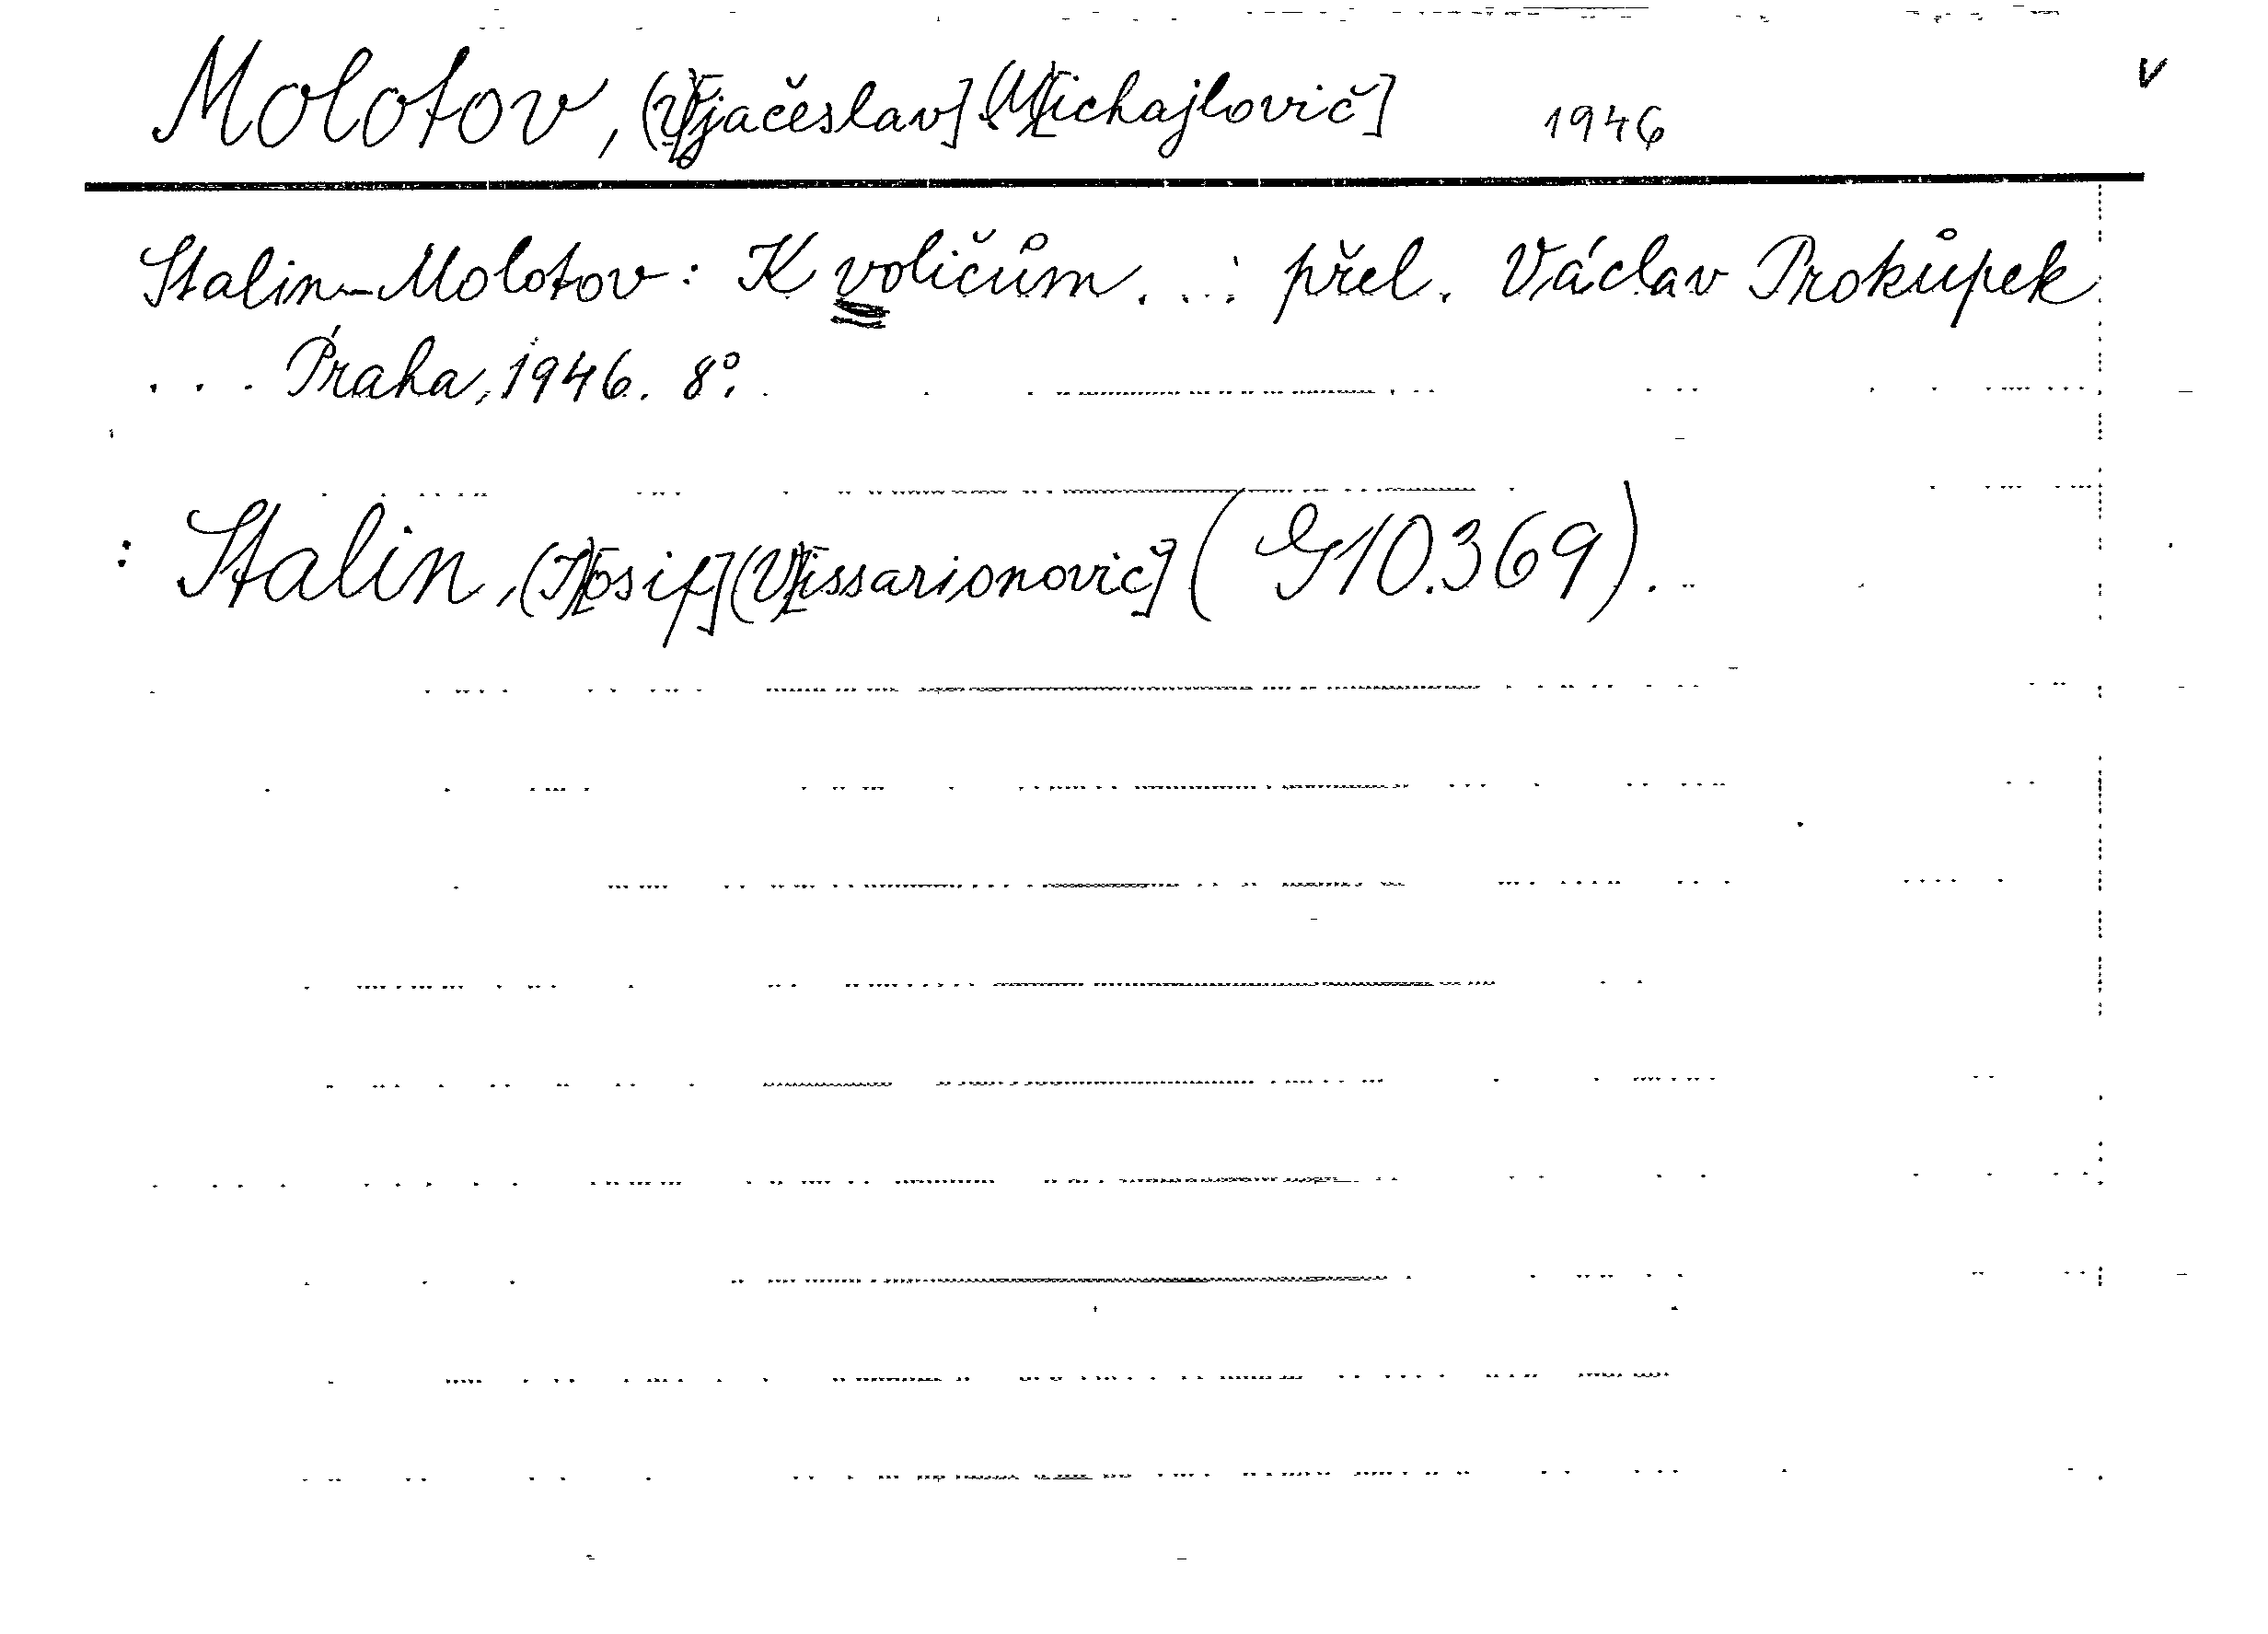 v
Molotov, (V)[jačeslav] (M)[ichajlovič] 1946
Stalin-Molotov: K voličům... přel. Václav Prokůpek
... Praha, 1946. 8°.
: Stalin, (J)[osif] (V)[issarionovič] (G10.369).